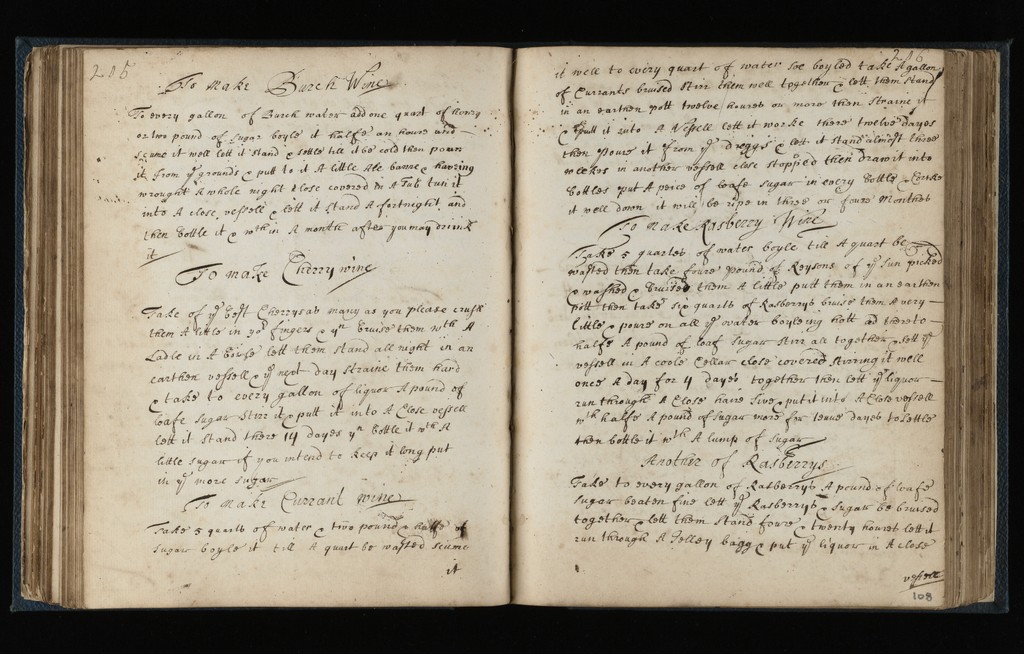 205
To Make Burch Wine
To every gallon of Burch water add one quart of honey
or two pound of sugar boyle it halfe an houre and
scume it well lett it stand & settle till it be cold then pown
it from ye grounds & put to it A little Ale barme & having
wrought A whole night close covered in A Tub tun it
into A close vessell & lett it stand A fortnight and
then bottle it & wth in A month after you may drink
it
To make Cherry wine
Take of ye best Cherrys as many as you please crush
them A little in yor fingers & yn bruise them wth A
Ladle in A lett them stand all night in an
earthen vessell & ye next day straine them hard
& take to every gallon of liquor A pound of
loafe sugar stirr it & putt it into A close vessell
lett it stand there 14 dayes yn bottle it wth A
little sugar if you intend to keep it long put
in ye more sugar
To Make Currant wine
Take 5 quarts of water & two pound & halfe of
sugar boyle it till A quart be wasted scume
it
206
it well to every quart of water soe boyled take A gallon
of Currants bruised stirr them well together & lett them stand
in an earthen pott twelve houres or more then straine it
& putt it into A Vessell lett it worke there twelve dayes
then poure it from ye dreggs & lett it stand almost three
weekes in another vessell close stopped then draw it into
bottles put A peice of loafe sugar in every bottle & Corke
it well down it will be ripe in three or foure Monthes
To Make Rasberry Wine
Take 5 quartes of water boyle till A quart be
wasted then take foure pound of Reysons of ye sun picked
& washed & bruised them A little putt them in an earthen
pott then take six quarts of Rasberrys bruise them A very
little & poure on all ye water boyleing hott ad thereto
halfe A pound of loaf sugar stirr all together & sett ye
vessell in A coole Cellar close covered stirring it well
once A day for 4 dayes together then lett ye liquor
run through A close haire sive & put it into A Close vessell
wth halfe A pound of sugar more for dayes to settle
then bottle it wth A lump of sugar
Another of Rasberrys
Take to every gallon of Rasberrys A pound of loafe
sugar beaten fine lett ye Rasberrys & sugar be bruised
together & lett them stand foure & twenty houres lett it
run through A Jelley bagg & put ye liquor in A close
vessell
108